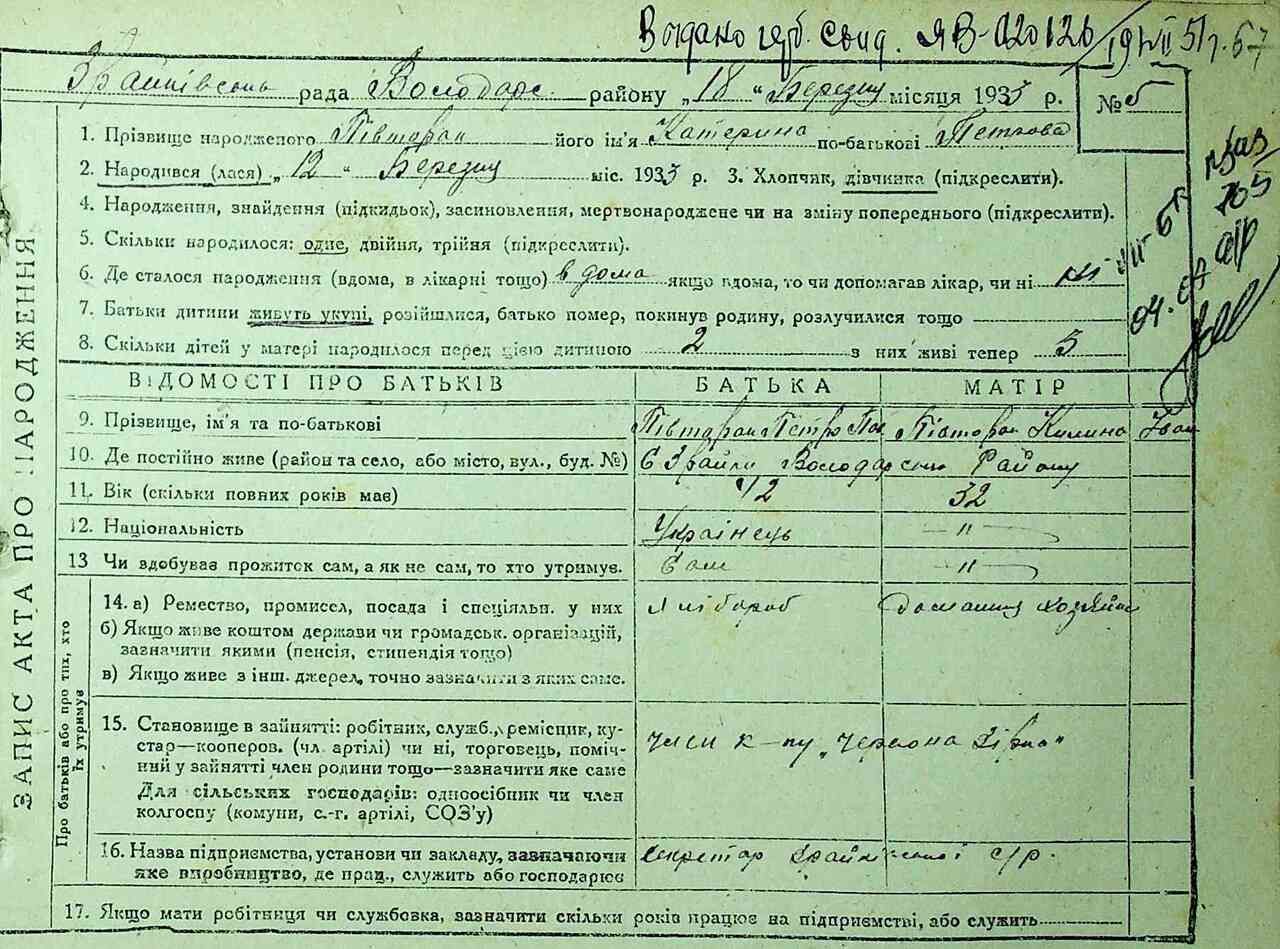 Видано герб. свид. ЯВ-020126
рада Володарс. району „18" Березня місяця 1933 р. №5
1. Прізвище народженого Півторак його ім'я Катерина по-батькові Петрова
2. Народився (лася) „12" Березня міс. 1933 р. 3. Хлопчик, дівчинка (підкреслити).
4. Народження, знайдення (підкидьок), засиновлення, мертвонароджене чи на зміну попереднього (підкреслити).
5. Скільки народилося: одне, двійня, трійня (підкреслити).
6. Де сталося народження (вдома, в лікарні тощо) в дома якщо вдома, то чи допомагав лікар, чи ні ні
7. Батьки дитини живуть укупі, розійшлися, батько помер, покинув родину, розлучилися тощо
8. Скільки дітей у матері народилося перед цією дитиною 2 з них живі тепер 3
ВІДОМОСТІ ПРО БАТЬКІВ БАТЬКА МАТІР
9. Прізвище, ім'я та по-батькові Півторак Петро Пав Півторак Килина Іван
10. Де постійно живе (район та село, або місто, вул., буд. №) С Володарського Району
11. Вік (скільки повних років має) 42 32
12. Національність Українець —"—
13 Чи вдобуває прожиток сам, а як не сам, то хто утримує. Сам —"—
14. а) Ремество, промисел, посада і спеціяльн. у них хлібороб домашня хозяйка
б) Якщо живе коштом держави чи громадськ. організацій,
зазначити якими (пенсія, стипендія тощо)
в) Якщо живе з інш. джерел, точно зазначити з яких саме.
15. Становище в зайнятті: робітник, служб., ремісник, ку-
стар—кооперов. (чл. артілі) чи ні, торговець, поміч-
ний у зайнятті член родини тощо—зазначити яке саме
Для сільських господарів: одноосібник чи член
колгоспу (комуни, с.-г. артілі, СОЗ'у)
член к-пу „Червона Зірка"
16. Назва підприємства, установи чи закладу, зазначаючи
яке виробництво, де прац., служить або господарює
секретар с/р.
17. Якщо мати робітниця чи службовка, зазначити скільки років працює на підприємстві, або служить
ЗАПИС АКТА ПРО НАРОДЖЕННЯ
Про батьків або про тих, хто
їх утримує